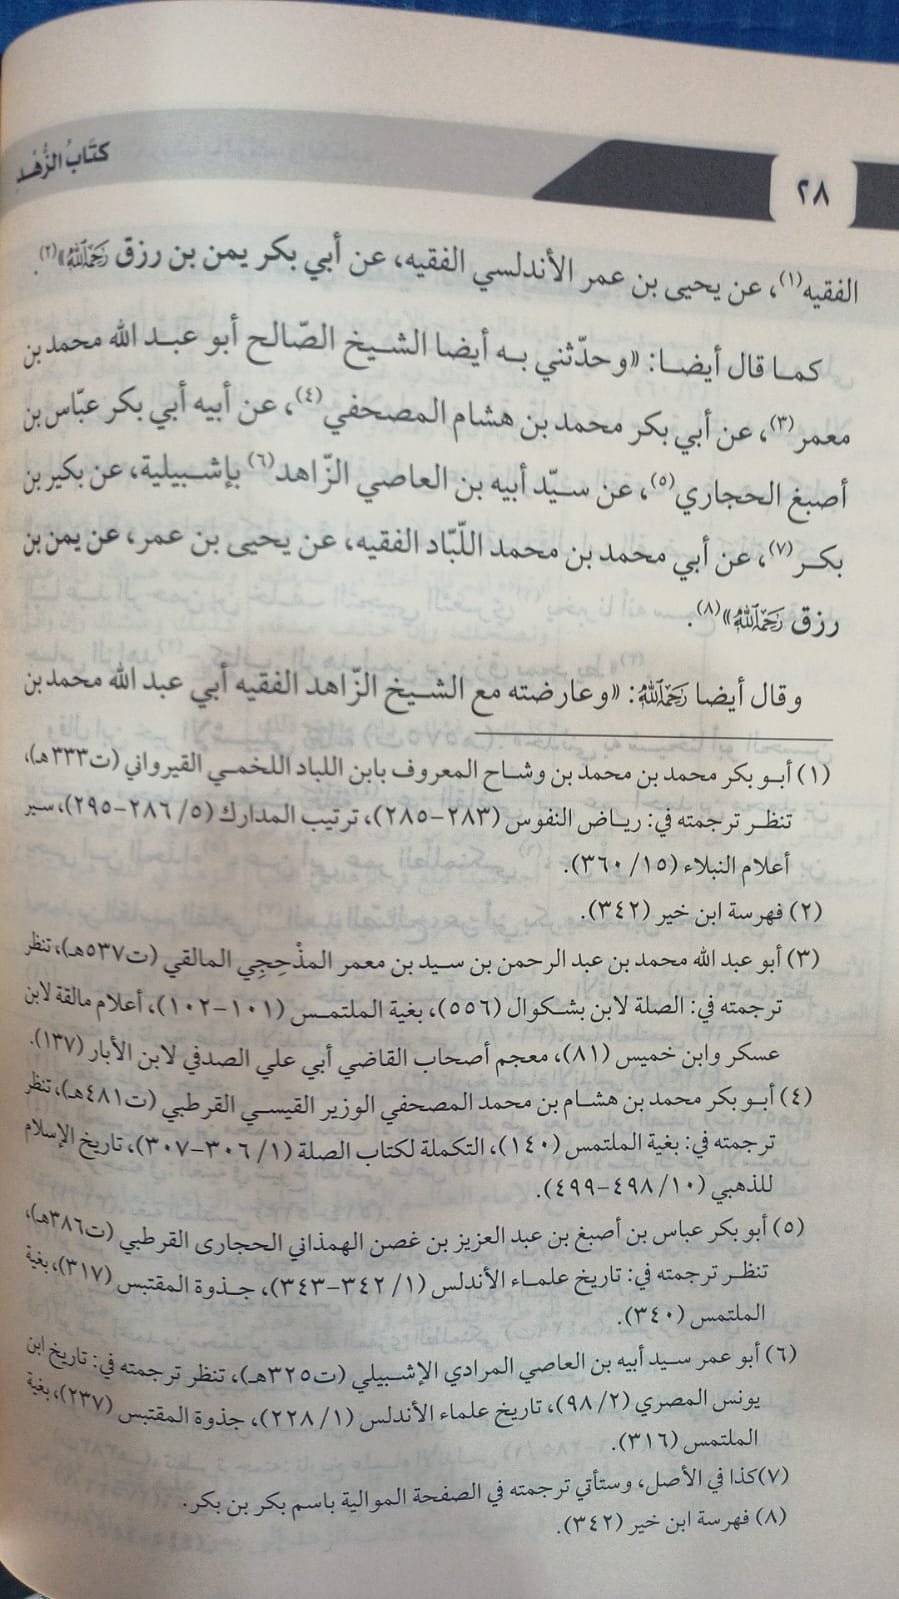 كتَابُ الزُّهْدِ
٢٨
الفقيه(١)، عن يحيى بن عمر الأندلسي الفقيه، عن أبي بكر يمن بن رزق رَحِمَهُ ٱللَّهُ»(٢).
كما قال أيضا: «وحدّثني به أيضا الشيخ الصّالح أبو عبد الله محمد بن
معمر(٣)، عن أبي بكر محمد بن هشام المصحفي(٤)، عن أبيه أبي بكر عبّاس بن
أصبغ الحجاري(٥)، عن سيّد أبيه بن العاصي الزّاهد(٦) بإشبيلية، عن بكير بن
بكر(٧)، عن أبي محمد بن محمد اللّبّاد الفقيه، عن يحيى بن عمر، عن يمن بن
رزق رَحِمَهُ ٱللَّهُ»(٨).
وقال أيضا رَحِمَهُ ٱللَّهُ: «وعارضته مع الشيخ الزّاهد الفقيه أبي عبد الله محمد بن
(١) أبو بكر محمد بن محمد بن وشاح المعروف بابن اللباد اللخمي القيرواني (ت٣٣٣هـ)،
تنظر ترجمته في: رياض النفوس (٢٨٣-٢٨٥)، ترتيب المدارك (٥/ ٢٨٦-٢٩٥)، سير
أعلام النبلاء (١٥/ ٣٦٠).
(٢) فهرسة ابن خير (٣٤٢).
(٣) أبو عبد الله محمد بن عبد الرحمن بن سيد بن معمر المذْحِجِي المالقي (ت٥٣٧هـ)، تنظر
ترجمته في: الصلة لابن بشكوال (٥٥٦)، بغية الملتمس (١٠١-١٠٢)، أعلام مالقة لابن
عسكر وابن خميس (٨١)، معجم أصحاب القاضي أبي علي الصدفي لابن الأبار (١٣٧).
(٤) أبو بكر محمد بن هشام بن محمد المصحفي الوزير القيسي القرطبي (ت٤٨١هـ)، تنظر
ترجمته في: بغية الملتمس (١٤٠)، التكملة لكتاب الصلة (١/ ٣٠٦-٣٠٧)، تاريخ الإسلام
للذهبي (١٠/ ٤٩٨-٤٩٩).
(٥) أبو بكر عباس بن أصبغ بن عبد العزيز بن غصن الهمذاني الحجارى القرطبي (ت٣٨٦هـ)،
تنظر ترجمته في: تاريخ علماء الأندلس (١/ ٣٤٢-٣٤٣)، جذوة المقتبس (٣١٧)، بغية
الملتمس (٣٤٠).
(٦) أبو عمر سيد أبيه بن العاصي المرادي الإشبيلي (ت٣٢٥هـ)، تنظر ترجمته في: تاريخ ابن
يونس المصري (٢/ ٩٨)، تاريخ علماء الأندلس (١/ ٢٢٨)، جذوة المقتبس (٢٣٧)، بغية
الملتمس (٣١٦).
(٧) كذا في الأصل، وستأتي ترجمته في الصفحة الموالية باسم بكر بن بكر.
(٨) فهرسة ابن خير (٣٤٢).